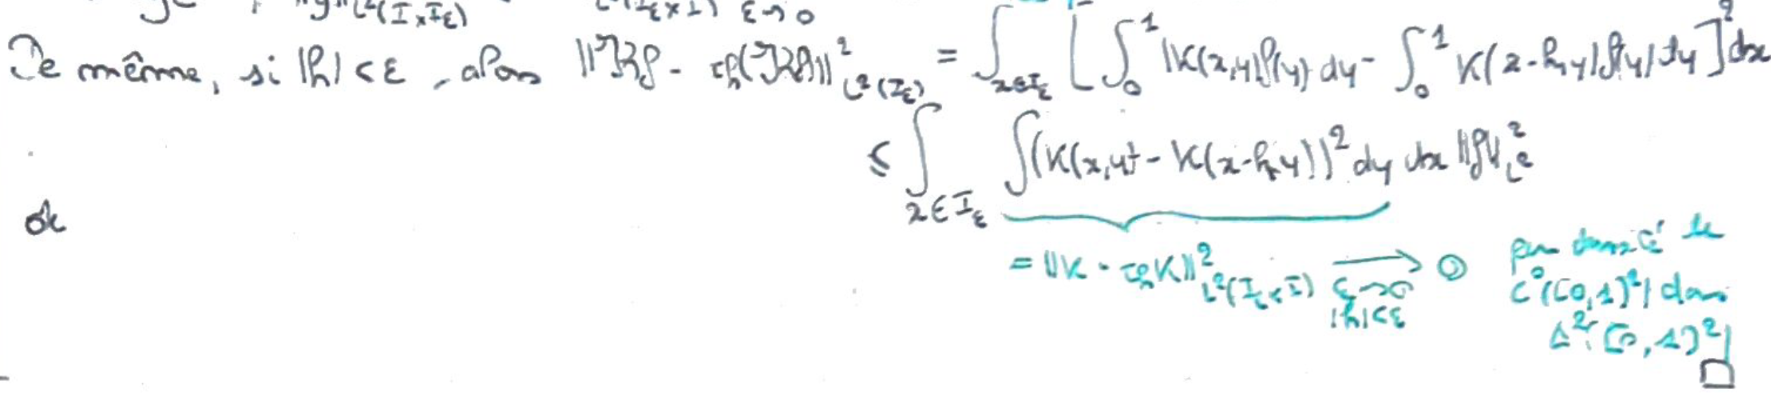 L²(I×I_ε) L²(I_ε×I) ε→0
De même, si |h|<ε, alors ||Kf - τ_h(Kf)||²_{L²(I_ε)} = ∫_{x∈I_ε} [∫_0^1 K(x,y)f(y) dy - ∫_0^1 K(x-h,y)f(y) dy]² dx
≤ ∫_{x∈I_ε} ∫(K(x,y) - K(x-h,y))² dy dx ||f||²_{L²}
ok
= ||K - τ_h K||²_{L²(I_ε×I)} ⟶_{ε→0, |h|<ε} 0 par densité de
C⁰([0,1]²) dans
L²([0,1]²)
□